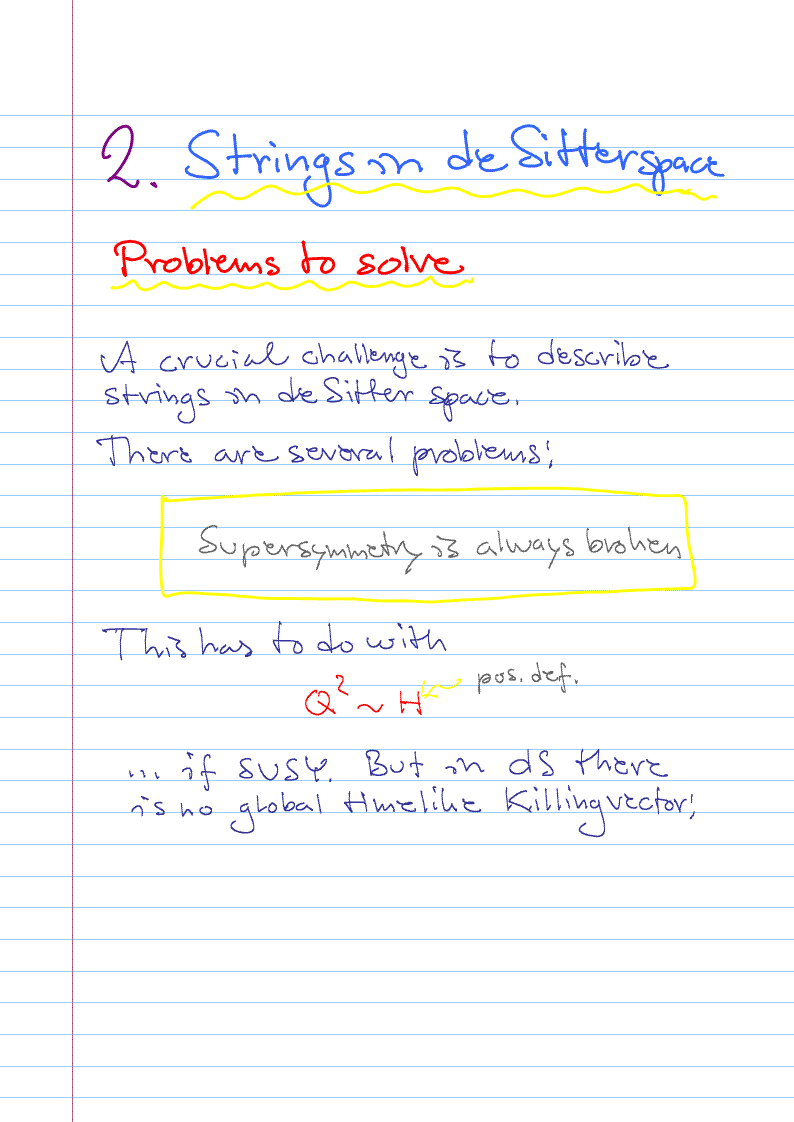 2. Strings in de Sitter space
Problems to solve
A crucial challenge is to describe
strings in de Sitter space.
There are several problems:
Supersymmetry is always broken
This has to do with
Q² ~ H pos. def.
... if SUSY. But in dS there
is no global timelike Killing vector!